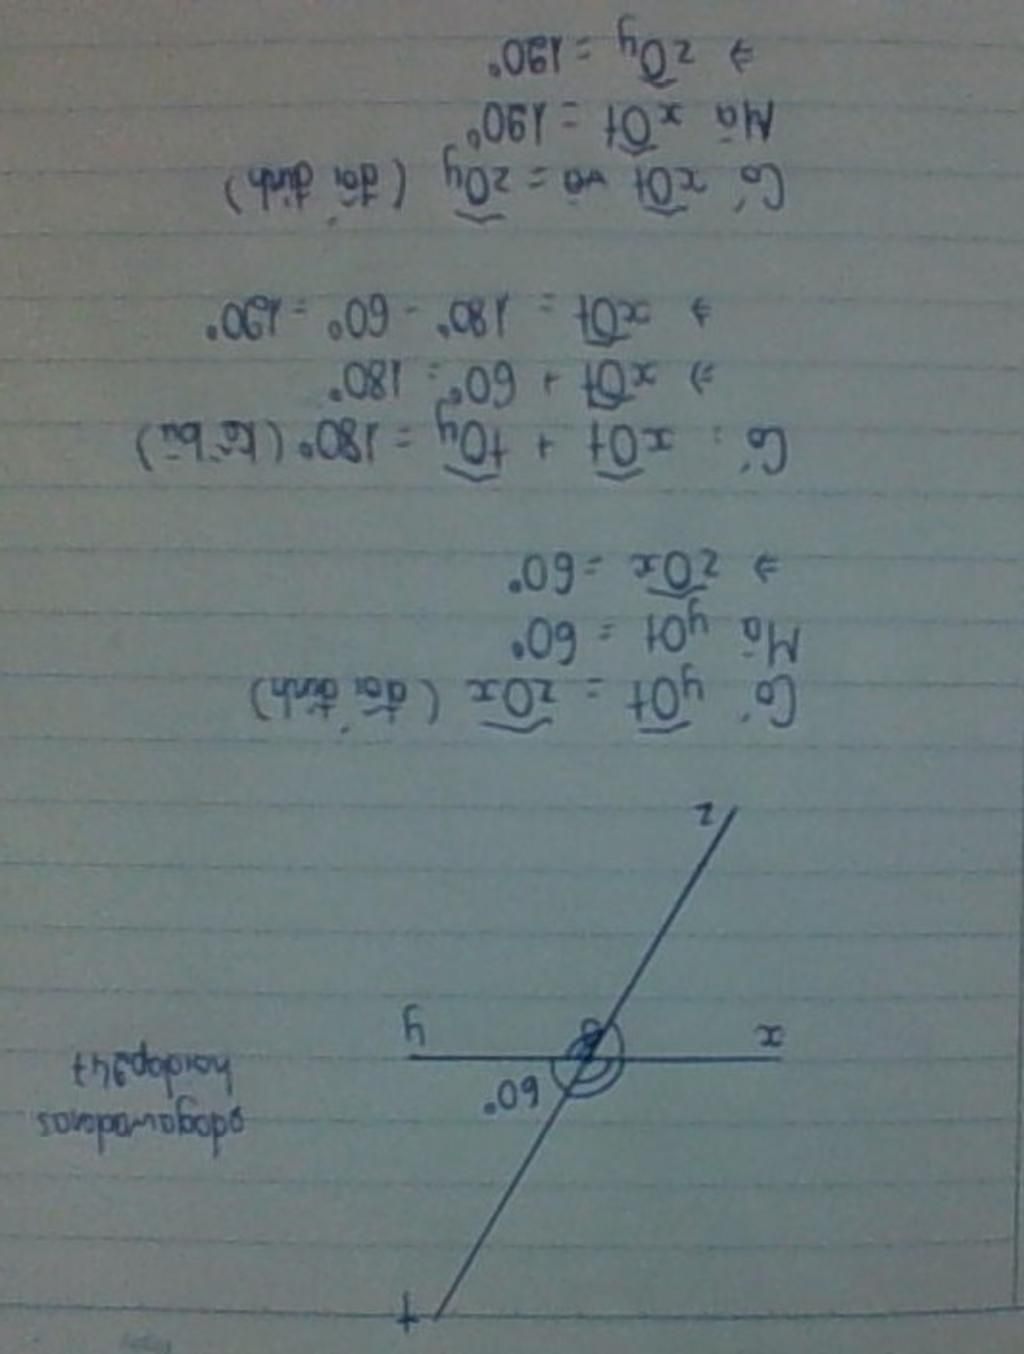 t
60°
x
O
y
z
edogawadoras
hoidap247
Có yOt = zOx (đối đỉnh)
Mà yOt = 60°
⇒ zOx = 60°
Có: xOt + tOy = 180° (kề bù)
⇒ xOt + 60° = 180°
⇒ xOt = 180° - 60° = 120°
Có xOt và = zOy (đối đỉnh)
Mà xOt = 120°
⇒ zOy = 120°